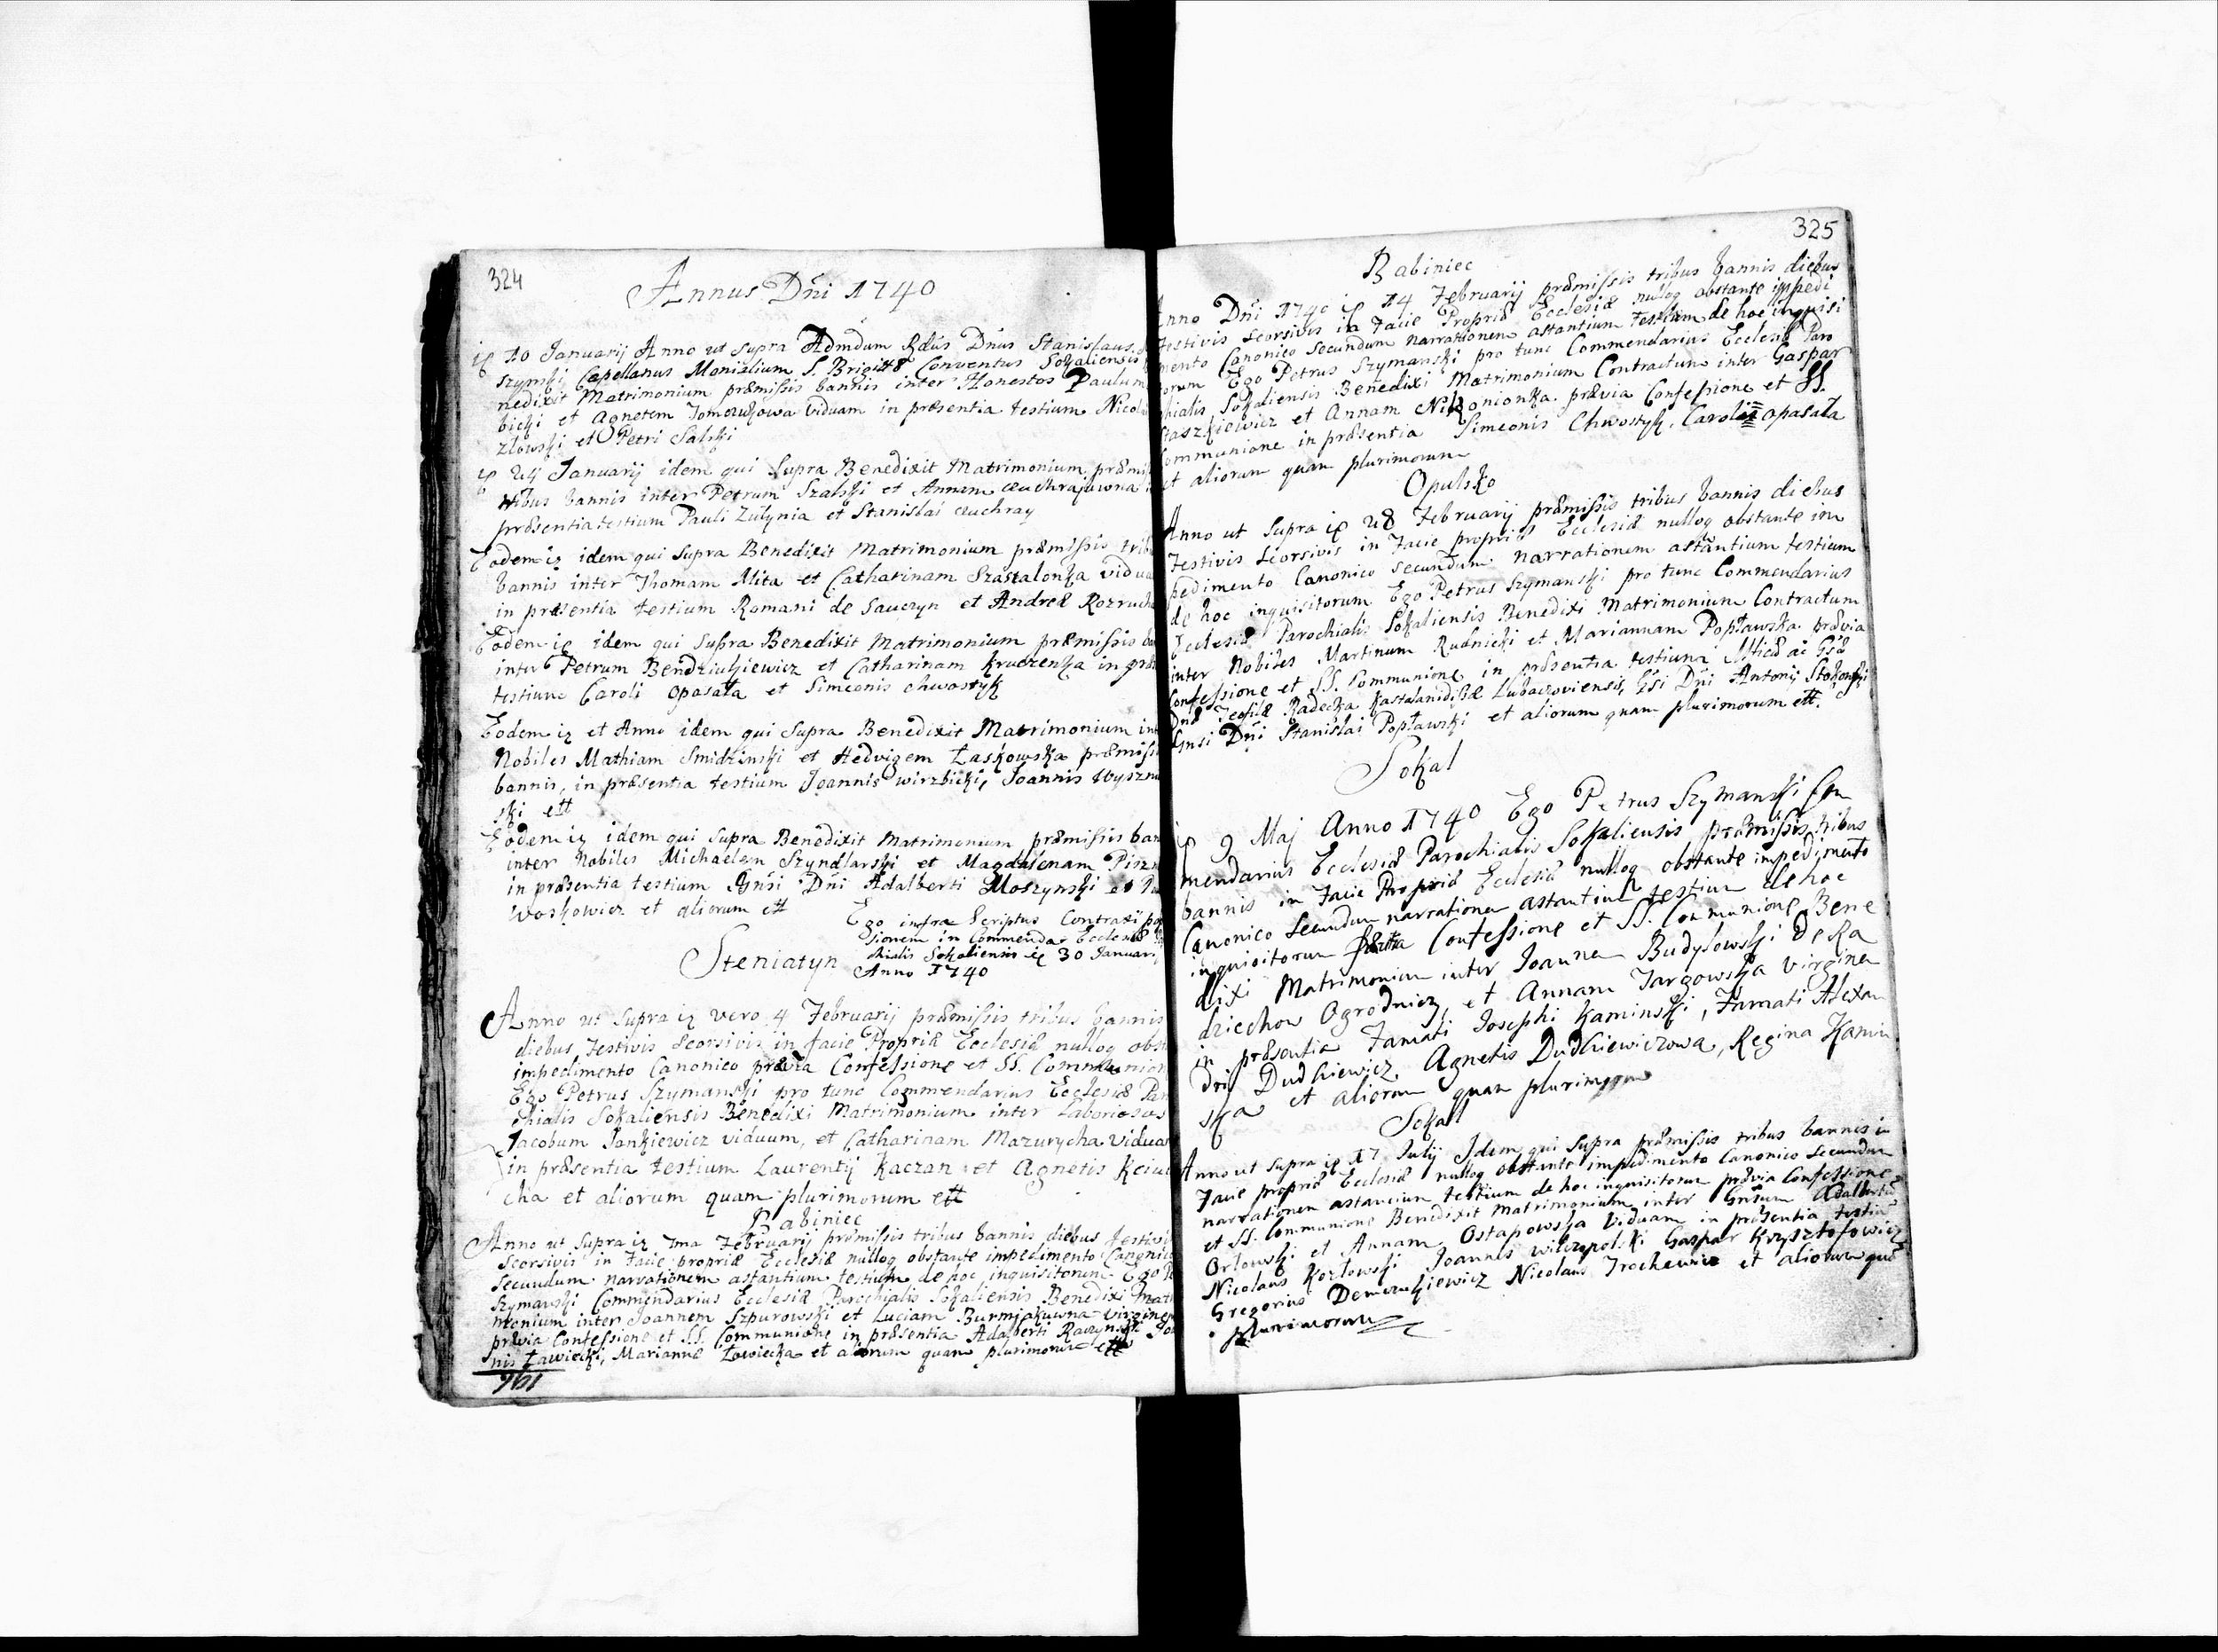 324
Annus Dni 1740
10 Januarij Anno ut Supra Admdum Rdus Dnus Stanislaus
szynski Capellanus Monialium S. Brigittæ Conventus Sokaliensis
nedixit Matrimonium præmissis bannis inter Honestos Paulum
bicki et Agnetem Viduam in præsentia testium Nicol
zlowski et Petri Salski
24 Januarij idem qui Supra Benedixit Matrimonium præmi
tribus bannis inter Petrum Szalski et Annam
præsentia testium Pauli Zulynia et Stanislai
Eodem idem qui Supra Benedixit Matrimonium præmissis trib
bannis inter Thomam Mita et Catharinam Szaszalonka vidua
in præsentia testium Romani de Sauczyn et Andreæ Rozruch
Eodem idem qui Supra Benedixit Matrimonium præmissis
inter Petrum Bendziukiewicz et Catharinam Kruczenka in præ
testium Caroli Opasała et Simeonis Chwostyk
Eodem et Anno idem qui Supra Benedixit Matrimonium in
Nobiles Mathiam Smidzinski et Hedvigem Łaskowska præmiss
bannis, in præsentia testium Joannis Wirzbicki, Joannis Wyszn
ski ett
Eodem idem qui Supra Benedixit Matrimonium præmissis ban
inter Nobiles Michaelem Szyndlarski et Magdalenam Pisz
in præsentia testium Gnsi Dni Adalberti Moszynski et
Woskowicz et aliorum ett
Ego infra Scriptus Contraxi pos
sionem in Commenda Ecclesiæ
chialis Sokaliensis 30 Januari
Anno 1740
Steniatyn
Anno ut Supra vero 4 Februarij præmissis tribus bannis
diebus Festivis Seorsivis in facie Propriæ Ecclesiæ nulloq obst
impedimento Canonico prævia Confessione et SS. Communion
Ego Petrus Szymanski pro tunc Commendarius Ecclesiæ Par
chialis Sokaliensis Benedixi Matrimonium inter Laboriosos
Jacobum Jankiewicz viduum, et Catharinam Mazurycha Vidua
in præsentia testium Laurentij Kaczan et Agnetis
cha et aliorum quam plurimorum ett
Babiniec
Anno ut Supra 7ma Februarij præmissis tribus bannis diebus festivi
Seorsivis in Facie propriæ Ecclesiæ nulloq obstante impedimento Canonico
Secundum narrationem astantium testium de hoc inquisitorum Ego
Szymanski Commendarius Ecclesiæ Parochialis Sokaliensis Benedixi Mat
monium inter Joannem Szpurowski et Luciam Burmjakuwna Virginem
prævia Confessione et SS. Communione in præsentia Adalberti Raczynski
nis Ławiecki, Mariannæ Łowiecka et aliorum quam plurimorum ett
325
Babiniec
Anno Dni 1740 14 Februarij præmissis tribus bannis diebus
Festivis Seorsivis in Facie Propriæ Ecclesiæ nulloq obstante impedi
mento Canonico Secundum narrationem astantium testium de hoc inquisi
torum Ego Petrus Szymanski pro tunc Commendarius Ecclesiæ Paro
chialis Sokaliensis Benedixi Matrimonium Contractum inter Gaspar
Staszkiewicz et Annam Nikonionka prævia Confessione et SS.
Communione in præsentia Simeonis Chwostyk, Caroli Opasała
et aliorum quam plurimorum
Opulsko
Anno ut Supra 28 Februarij præmissis tribus bannis diebus
Festivis Seorsivis in Facie propriæ Ecclesiæ nulloq obstante im
pedimento Canonico Secundum narrationem astantium testium
de hoc inquisitorum Ego Petrus Szymanski pro tunc Commendarius
Ecclesiæ Parochialis Sokaliensis Benedixi Matrimonium Contractum
inter Nobiles Martinum Rudnicki et Mariannam Popławska prævia
Confessione et SS. Communione in præsentia testium
Dnæ Teofilæ Radecka Lubaczoviensis, Dni Antonij Stokowski
Gnsi Dni Stanislai Popławski et aliorum quam plurimorum ett.
Sokal
9 Maj Anno 1740 Ego Petrus Szymanski Com
mendarius Ecclesiæ Parochialis Sokaliensis præmissis tribus
bannis in Facie Propriæ Ecclesiæ nulloq obstante impedimento
Canonico Secundum narrationem astantium testium de hoc
inquisitorum Confessione et SS. Communione Bene
dixi Matrimonium inter Joannem Budylowski de Ra
dziechow Ogrodnicz, et Annam Targowska Virginem
in præsentia Famati Josephi Kaminski, Famati Alexan
dri Dudkiewicz, Agnetis Dudkiewiczowa, Regina Kamin
ska et aliorum quam plurimorum
Sokal
Anno ut Supra 17 Julij Idem qui Supra præmissis tribus bannis in
Facie propriæ Ecclesiæ nulloq obstante impedimento Canonico Secundum
narrationem astantium testium de hoc inquisitorum prævia Confessione
et SS. Communione Benedixit Matrimonium inter Gnsum Adalbertum
Orlowski et Annam Ostapowska Viduam in præsentia testium
Nicolaus Kozlowski Joannis Wilczopolski Gaspar Krzysztofowicz
Gregorius Nicolaus Trochewicz et aliorum quam
plurimorum